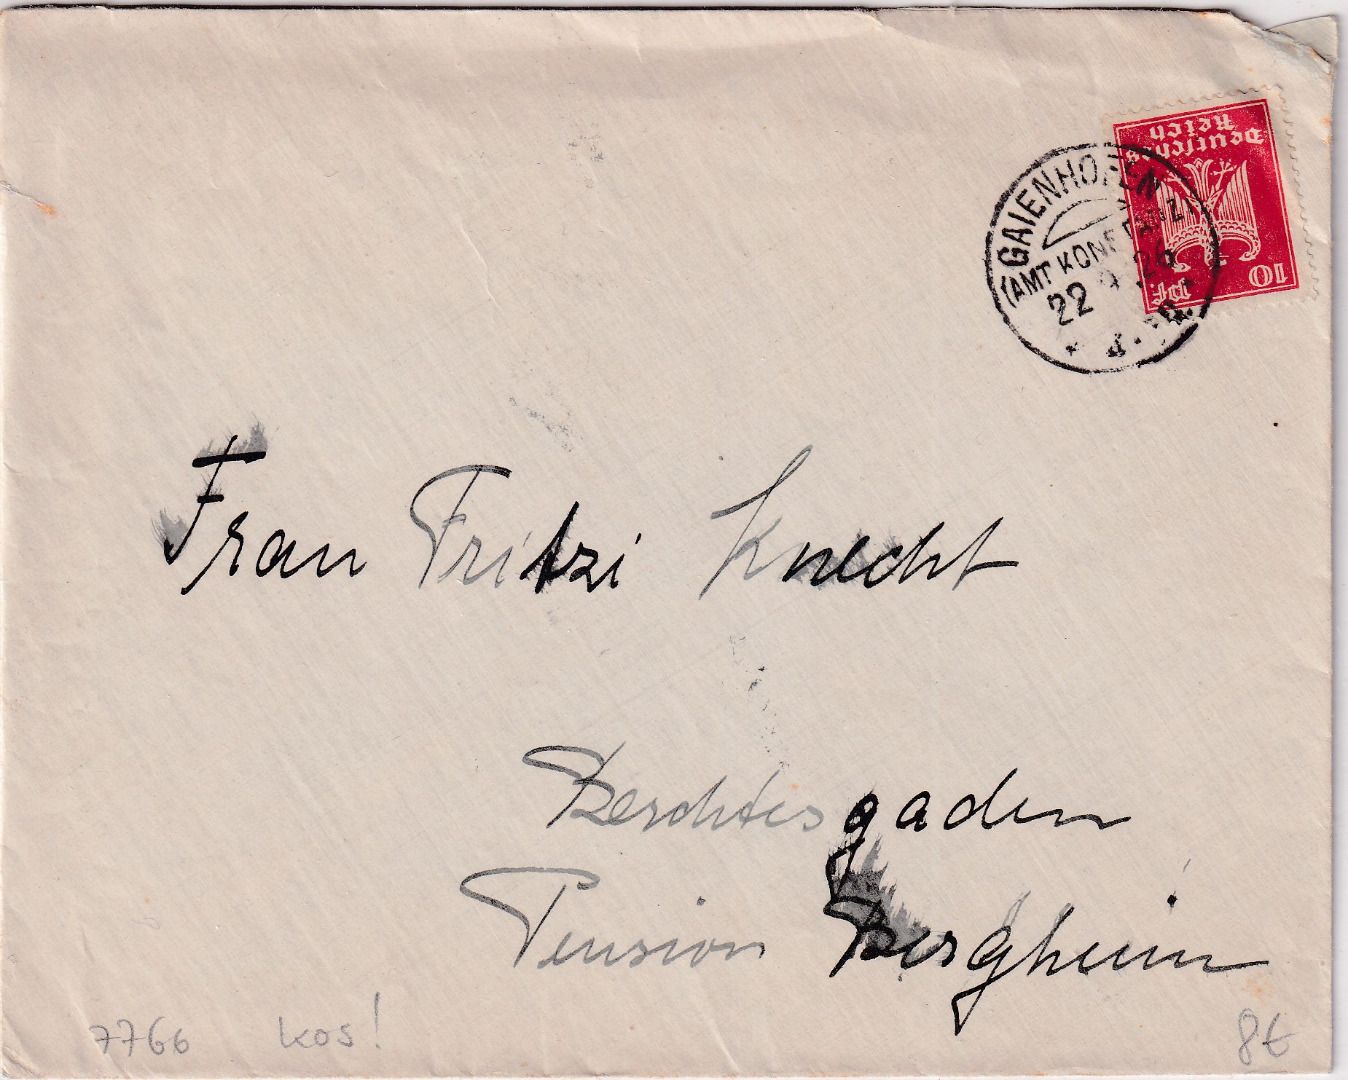 Deutsches
Reich
10 Pf.
GAIENHOFEN
(AMT KONSTANZ)
22 9 26
Frau Fritzi Knecht
Berchtesgaden
Pension Bergheim
7766 kos! 8€